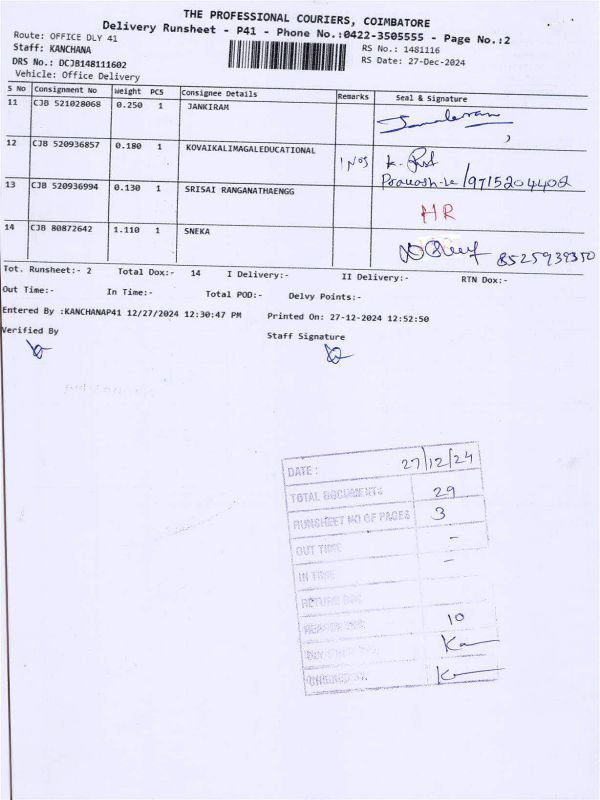 THE PROFESSIONAL COURIERS, COIMBATORE
Delivery Runsheet - P41 - Phone No.:0422-3505555 - Page No.:2
Route: OFFICE DLY 41
RS No.: 1481116
Staff: KANCHANA
RS Date: 27-Dec-2024
DRS No.: DCJB148111602
Vehicle: Office Delivery
S No Consignment No Weight PCS Consignee Details Remarks Seal & Signature
11 CJB 521028068 0.250 1 JANKIRAM
12 CJB 520936857 0.180 1 KOVAIKALIMAGALEDUCATIONAL
9715204402
13 CJB 520936994 0.130 1 SRISAI RANGANATHAENGG
HR
14 CJB 80872642 1.110 1 SNEKA
8525939350
Tot. Runsheet:- 2 Total Dox:- 14 I Delivery:- II Delivery:- RTN Dox:-
Out Time:- In Time:- Total POD:- Delvy Points:-
Entered By :KANCHANAP41 12/27/2024 12:30:47 PM Printed On: 27-12-2024 12:52:50
Verified By Staff Signature
DATE : 27/12/24
TOTAL DOCUMENTS 29
RUNSHEET NO OF PAGES 3
OUT TIME -
IN TIME -
RETURN DOC
10